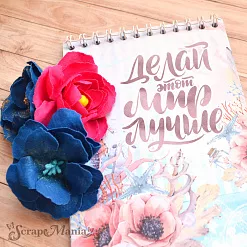 Делай
этот
мир
лучше
ScrapeMania.ru